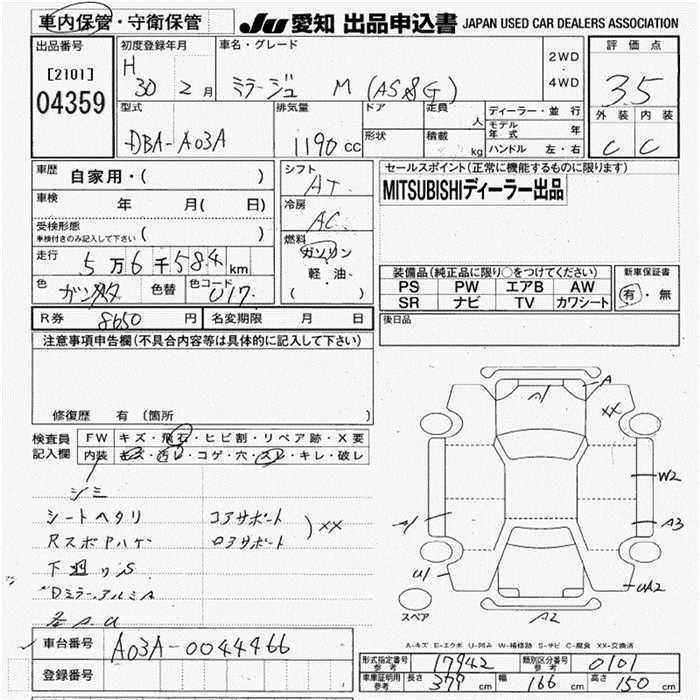 車内保管・守衛保管 JU 愛知 出品申込書 JAPAN USED CAR DEALERS ASSOCIATION
出品番号 初度登録年月 車名・グレード 2WD・4WD 評価点
[2101] H 30 2月 ミラージュ M (AS&G) 3.5
04359
型式 排気量 ドア 定員 人 ディーラー・並行 外装 内装
モデル年式 年
DBA-A03A 1190cc 形状 積載 kg ハンドル 左・右 C C
車歴 自家用・( ) シフト AT セールスポイント(正常に機能するものに限ります)
車検 年 月( 日) 冷房 AC MITSUBISHIディーラー出品
受検形態 ( )
車検付きのみ記入して下さい
燃料
走行 5万6千584km ガソリン
軽油・
( )
装備品(純正品に限り○をつけてください) 新車保証書
色 ガンメタ 色替 色コード U17. PS PW エアB AW 有・無
SR ナビ TV カワシート
R券 8650円 名変期限 月 日 後日品
注意事項申告欄(不具合内容等は具体的に記入して下さい)
修復歴 有(箇所 )
検査員記入欄 FW キズ・飛石・ヒビ割・リペア跡・X要
内装 キズ・汚レ・コゲ・穴・スレ・キレ・破レ
シミ
シートヘタリ コアサポート
ロアサポート ) XX
下廻りS
DミラーアルミA
各A.U
A A1 XX
W2
A1 A3
U1 UA2
スペア A2
A-キズ E-エクボ U-凹み W-補修跡 S-サビ C-腐食 XX-交換済
車台番号 A03A-0044466
登録番号
形式指定番号 参考 17942 類別区分番号 参考 0101
車庫証明用 参考 長さ 379cm 幅 166cm 高さ 150cm